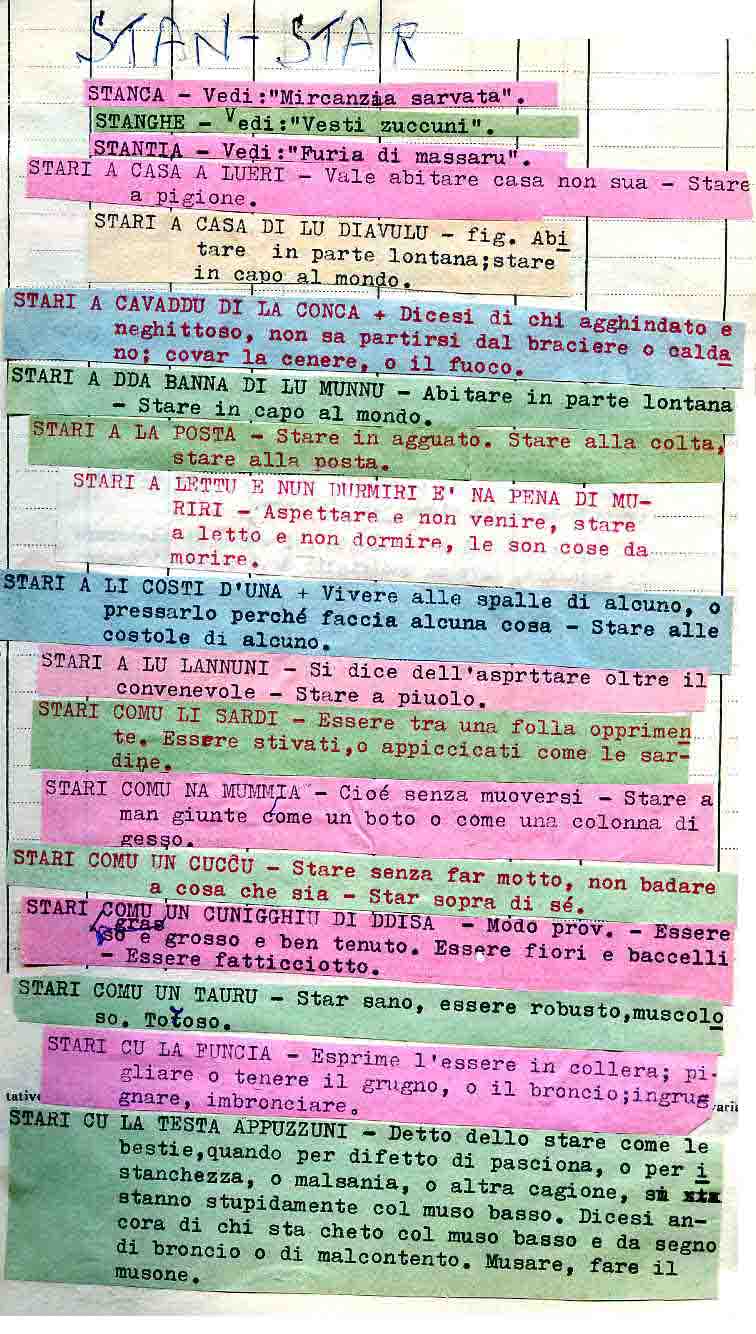 STAN-STAR
STANCA - Vedi:"Mircanzia sarvata".
STANGHE - Vedi:"Vesti zuccuni".
STANTIA - Vedi:"Furia di massaru".
STARI A CASA A LUERI - Vale abitare casa non sua - Stare
a pigione.
STARI A CASA DI LU DIAVULU - fig. Abi
tare in parte lontana;stare
in capo al mondo.
STARI A CAVADDU DI LA CONCA + Dicesi di chi agghindato e
neghittoso, non sa partirsi dal braciere o calda
no; covar la cenere, o il fuoco.
STARI A DDA BANNA DI LU MUNNU - Abitare in parte lontana
- Stare in capo al mondo.
STARI A LA POSTA - Stare in agguato. Stare alla colta,
stare alla posta.
STARI A LETTU E NUN DURMIRI E' NA PENA DI MU-
RIRI - Aspettare e non venire, stare
a letto e non dormire, le son cose da
morire.
STARI A LI COSTI D'UNA + Vivere alle spalle di alcuno, o
pressarlo perché faccia alcuna cosa - Stare alle
costole di alcuno.
STARI A LU LANNUNI - Si dice dell'asprttare oltre il
convenevole - Stare a piuolo.
STARI COMU LI SARDI - Essere tra una folla opprimen
te. Essere stivati,o appiccicati come le sar-
dine.
STARI COMU NA MUMMIA - Cioé senza muoversi - Stare a
man giunte come un boto o come una colonna di
gesso.
STARI COMU UN CUCCU - Stare senza far motto, non badare
a cosa che sia - Star sopra di sé.
STARI COMU UN CUNIGGHIU DI DDISA - Modo prov. - Essere
gras
so e grosso e ben tenuto. Essere fiori e baccelli
- Essere fatticciotto.
STARI COMU UN TAURU - Star sano, essere robusto,muscolo
so. Totoso.
STARI CU LA FUNCIA - Esprime l'essere in collera; pi-
gliare o tenere il grugno, o il broncio;ingrug
gnare, imbronciare.
tative
varia
STARI CU LA TESTA APPUZZUNI - Detto dello stare come le
bestie,quando per difetto di pasciona, o per i
stanchezza, o malsania, o altra cagione, si
stanno stupidamente col muso basso. Dicesi an-
cora di chi sta cheto col muso basso e da segno
di broncio o di malcontento. Musare, fare il
musone.